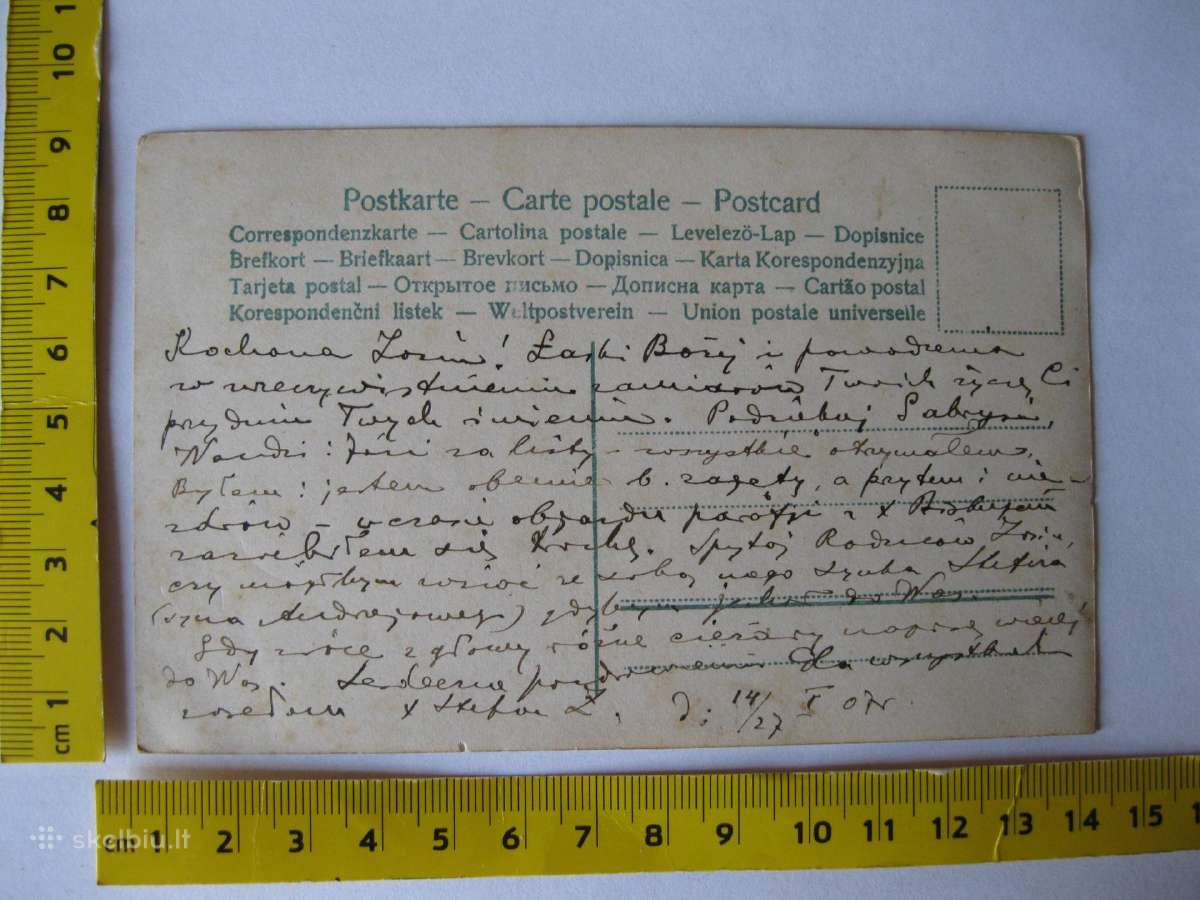 Postkarte — Carte postale — Postcard
Correspondenzkarte — Cartolina postale — Levelező-Lap — Dopisnice
Brefkort — Briefkaart — Brevkort — Dopisnica — Karta Korespondenzyjna
Tarjeta postal — Открытое письмо — Дописна карта — Cartão postal
Korespondenčni listek — Weltpostverein — Union postale universelle
Kochana Zosiu! Łaski Bożej i powodzenia
w urzeczywistnieniu zamiarów Twoich życzę Ci
przy dniu Twych imienin. Podziękuj Gabrysi,
Wandzi i Józi za listy – wszystkie otrzymałem.
Byłem i jestem obecnie b. zajęty, a przytem i nie-
zdrów – w czasie objazdu parafji z x Biskupem
zaziębiłem się trochę. Spytaj Rodziców Zosiu,
czy mógłbym wziąć ze sobą Stefcia
(syna Andrzejowego) gdybym jechał do Was.
Gdy zrzucę z głowy różne ciężary napiszę więcej
do Was. Serdeczne pozdrowienia dla wszystkich
x Stefan Ż. d: 14/27 I 07r.
cm 1 2 3 4 5 6 7 8 9 10 1
cm 1 2 3 4 5 6 7 8 9 10 11 12 13 14 15 1
skelbiu.lt